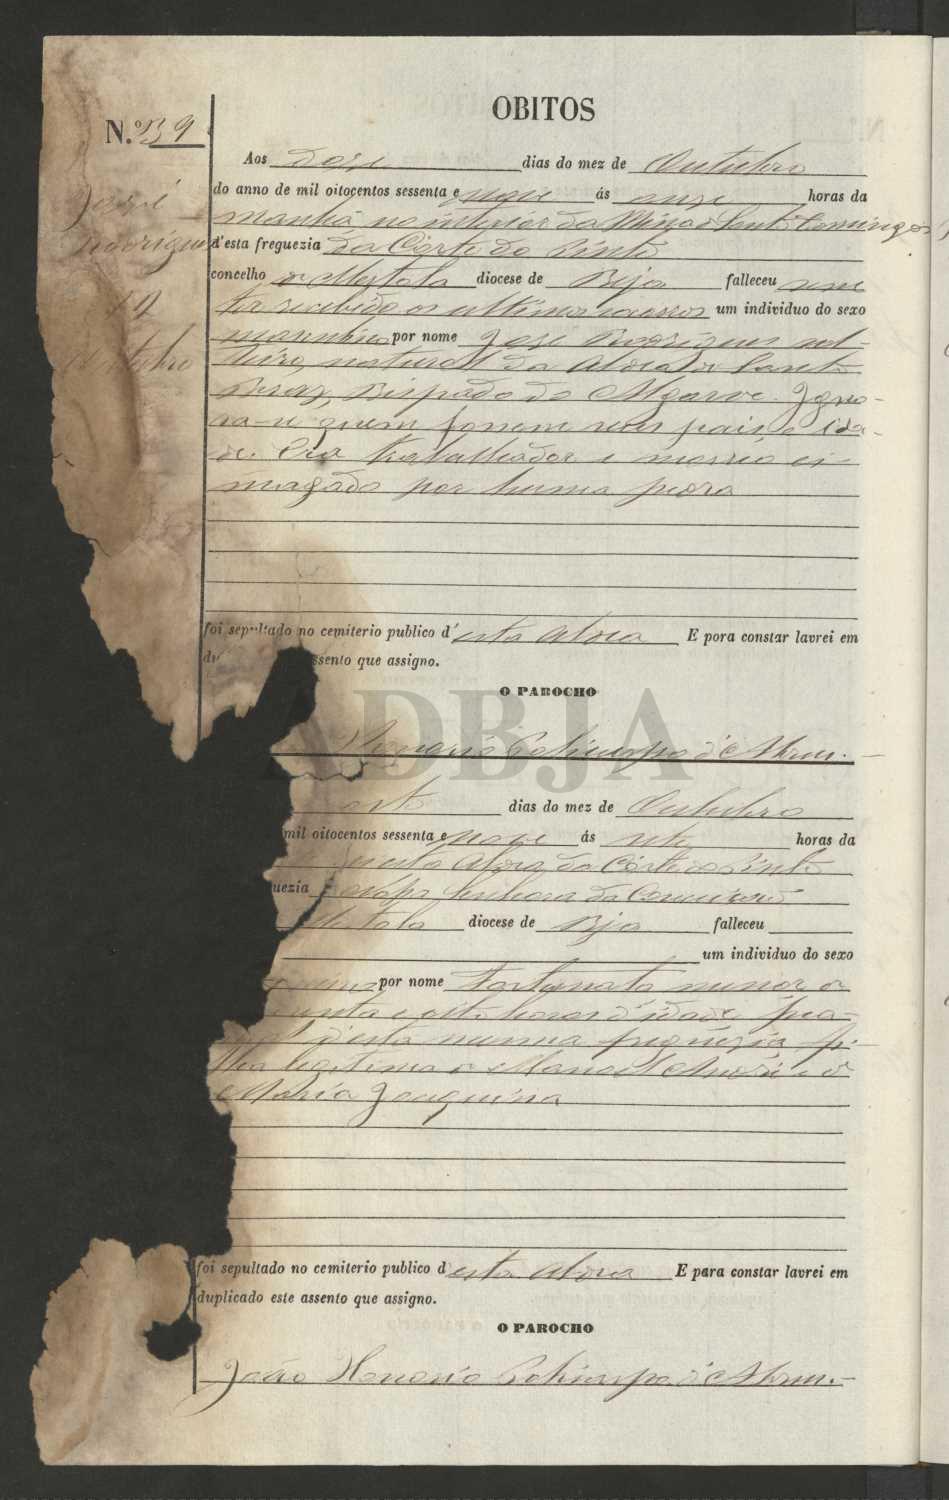 OBITOS
N.º 39
José
Rodrigues
12
Outubro
Aos doze dias do mez de Outubro
do anno de mil oitocentos sessenta e nove ás onze horas da
manhã no interior da Mina de Sant. Domingos
d'esta freguezia da Côrte do Pinto
concelho de Mertola diocese de Beja falleceu sem
ter recebido os ultimos um individuo do sexo
masculino por nome José Rodrigues sol-
teiro, natural da Aldea de Santo
Braz, Bispado do Algarve. Igno-
ra-se quem fossem seus pais, e ida-
de. Era trabalhador e morreo es-
magado por huma pedra
foi sepultado no cemiterio publico d'esta Aldea E pora constar lavrei em
ssento que assigno.
O PAROCHO
Honorio Policarpo d'Abreu.
ADBJA
dias do mez de Outubro
mil oitocentos sessenta e nove ás sete horas da
nesta Aldea da Côrte do Pinto
uezia Senhora da Conceição
Mertola diocese de Beja falleceu
um individuo do sexo
por nome Fortunata menor de
e oito horas d'idade
d'esta mesma freguezia, fi-
lha legitima de Manoel André e de
Maria Joaquina
foi sepultado no cemiterio publico d'esta Aldea E para constar lavrei em
duplicado este assento que assigno.
O PAROCHO
João Honorio Policarpo d'Abreu.